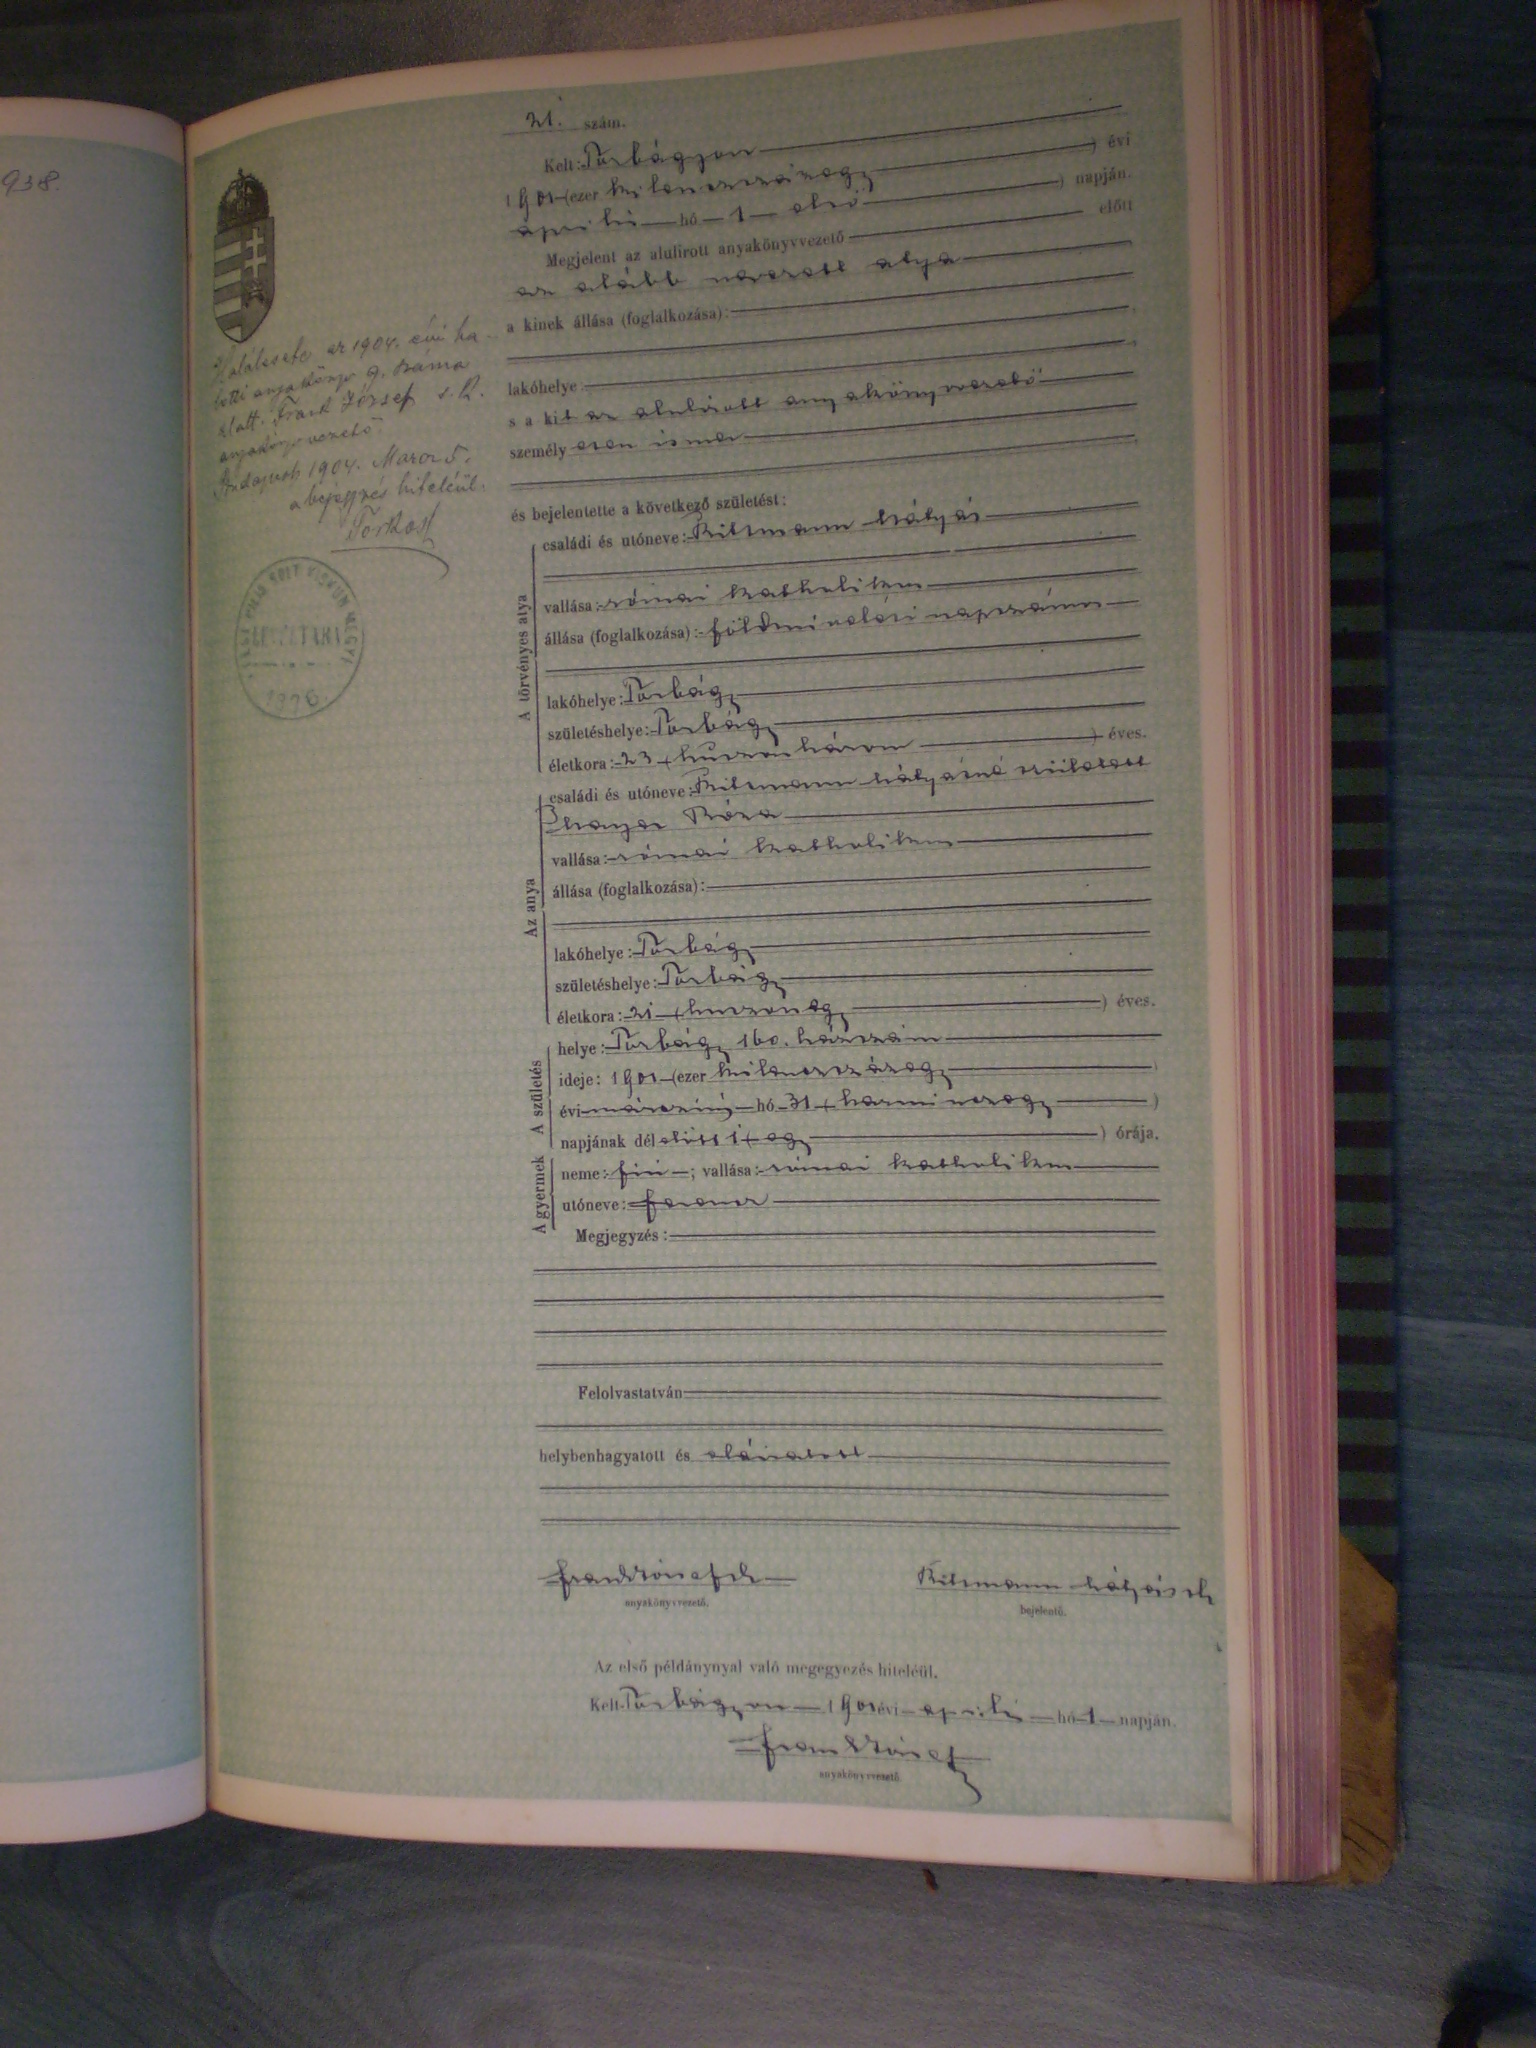 938.
21. szám.
Kelt: Torbágyon
1901 (ezer kilenczszázegy ) évi
április hó 1 első ) napján.
Megjelent az alulírott anyakönyvvezető előtt
az alább nevezett atya
a kinek állása (foglalkozása):
lakóhelye
s a kit az alulírott anyakönyvvezető
személyesen ismer
és bejelentette a következő születést:
A törvényes atya
családi és utóneve: Ritzmann Mátyás
vallása: római katholikus
állása (foglalkozása): földmívelési napszámos
lakóhelye: Torbágy
születéshelye: Torbágy
életkora: 23 (huszonhárom ) éves.
Az anya
családi és utóneve: Ritzmann Mátyásné született
Róza
vallása: római katholikus
állása (foglalkozása):
lakóhelye: Torbágy
születéshelye: Torbágy
életkora: 21 (huszonegy ) éves.
A születés
helye: Torbágy 160. házszám
ideje: 1901 (ezer kilenczszázegy )
évi márczius hó 31 (harminczegy )
napjának délelőtt 1 (egy ) órája.
A gyermek
neme: fiú ; vallása: római katholikus
utóneve: Ferencz
Megjegyzés:
Felolvastatván
helybenhagyatott és aláíratott
Frank József
anyakönyvvezető.
Ritzmann Mátyás
bejelentő.
Az első példánynyal való megegyezés hiteléül.
Kelt Torbágyon 1901 évi április hó 1 napján.
Frank József
anyakönyvvezető.
Halálesete az 1904. évi ha-
lotti anyakönyv 9. száma
alatt. Frank József s. k.
anyakönyvvezető
Budapest 1904. Marcz 5.
a bejegyzés hiteléül.
PEST PILIS SOLT KISKUN MEGYE